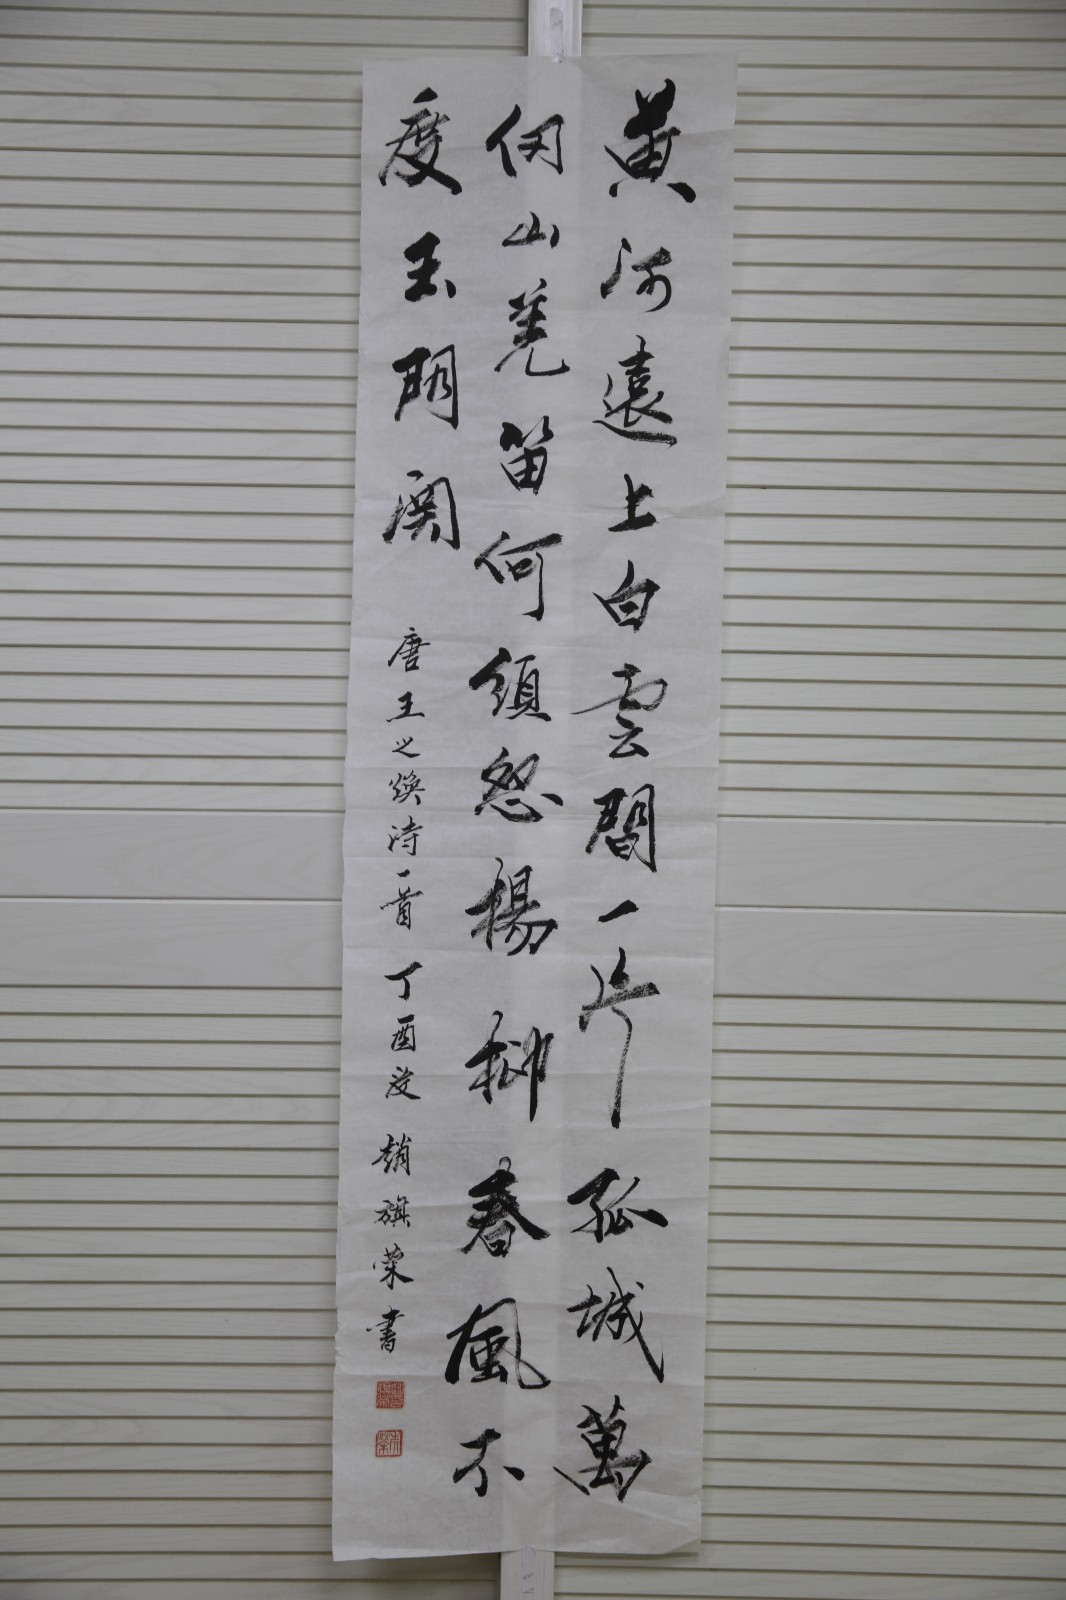 黄河遠上白雲間一片孤城萬
仞山羌笛何須怨楊柳春風不
度玉門関
唐王之煥詩一首 丁酉 趙旗榮書